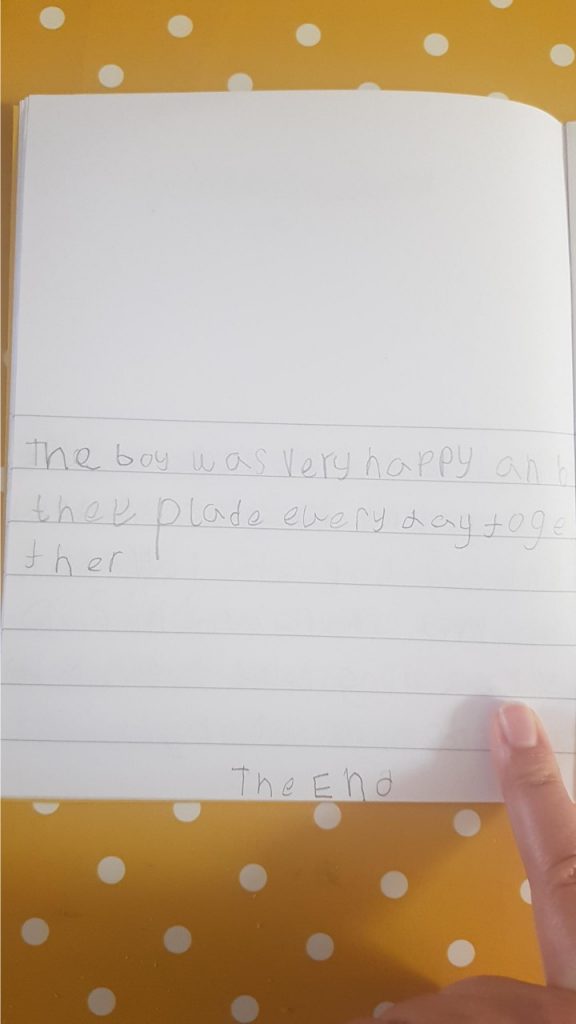 The boy was very happy anb
they plade every day toge
ther
The End